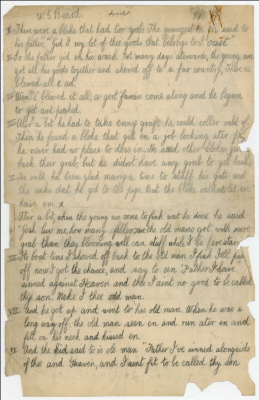 W. S. Beard
II There were a bloke that had two yobs. The youngest on em said to
his father, "Gid I my lot of thee goods that belongs to I.
III So the father did on his wack. Not many days aterwards, the young un
got all his goods together and shoved off to a far country, Where he
blewed all e ad.
IV When'd blewed it all, a gert famine come along and he began
to get
Ater a bit he had to take enny graft he could, coller hold of.
Then he found a bloke that got on a job looking ater pigs
he never had no place to doss in. He said other blokes
back their grub, but he didnt have any grub to get back
He med he been glad many a time to stuff his guts with
the sake dat he got to the pigs but the bloke ouldnt let en
have em. x
Ater a bit, when the young un come to think wat he done he said
"Gosh luv me, how many fellers as the old mans got with more
grub than they blooming well can stuff while I be
VII Its best time I shoved off back to the old man I find I'll
off now I got the chance, and say to un Father I have
sinned against Heaven and thee I aint no good to be called
thy son. Make I thee odd man.
VIII And he got up and went to his old man. When he was a
long way off, the old man seen en and run ater en and
fell on his neck and kissed en.
IX And the kid said to is ole man "Father I've sinned alongside
of thee and Heaven, and I aint fit to be called thy son